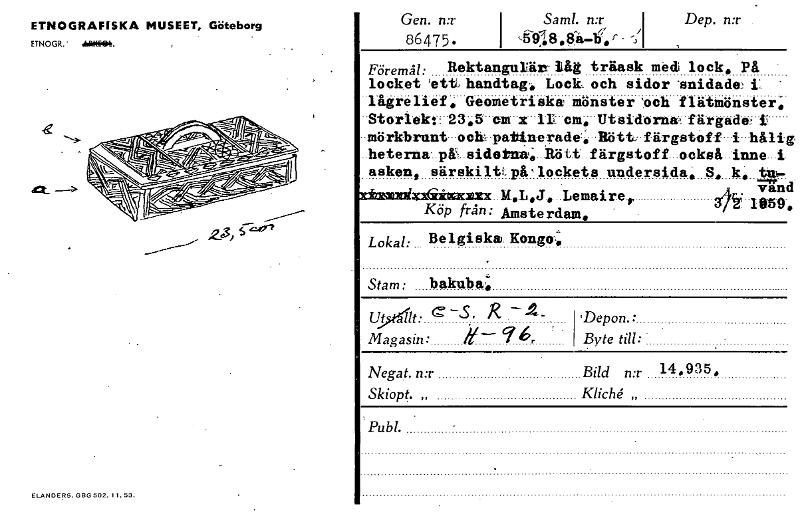 ETNOGRAFISKA MUSEET, Göteborg
ETNOGR.
Gen. n:r
Saml. n:r
Dep. n:r
86475.
59.8.8a-b.
Föremål: Rektangulär låg träask med lock. På
locket ett handtag. Lock och sidor snidade i
lågrelief. Geometriska mönster och flätmönster.
Storlek: 23.5 cm x 11 cm. Utsidorna färgade i
mörkbrunt och patinerade. Rött färgstoff i hålig
heterna på sidorna. Rött färgstoff också inne i
asken, särskilt på lockets undersida. S. k. tu-
vänd
M.L.J. Lemaire,
Köp från: Amsterdam.
3/2 1959.
b
a
23,5cm
Lokal: Belgiska Kongo.
Stam: bakuba.
Utställt: C-S. R-2.
Depon.:
Magasin: H-96.
Byte till:
Negat. n:r
Bild n:r 14.935.
Skiopt. „
Kliché „
Publ.
ELANDERS, GBG 502. 11. 53.